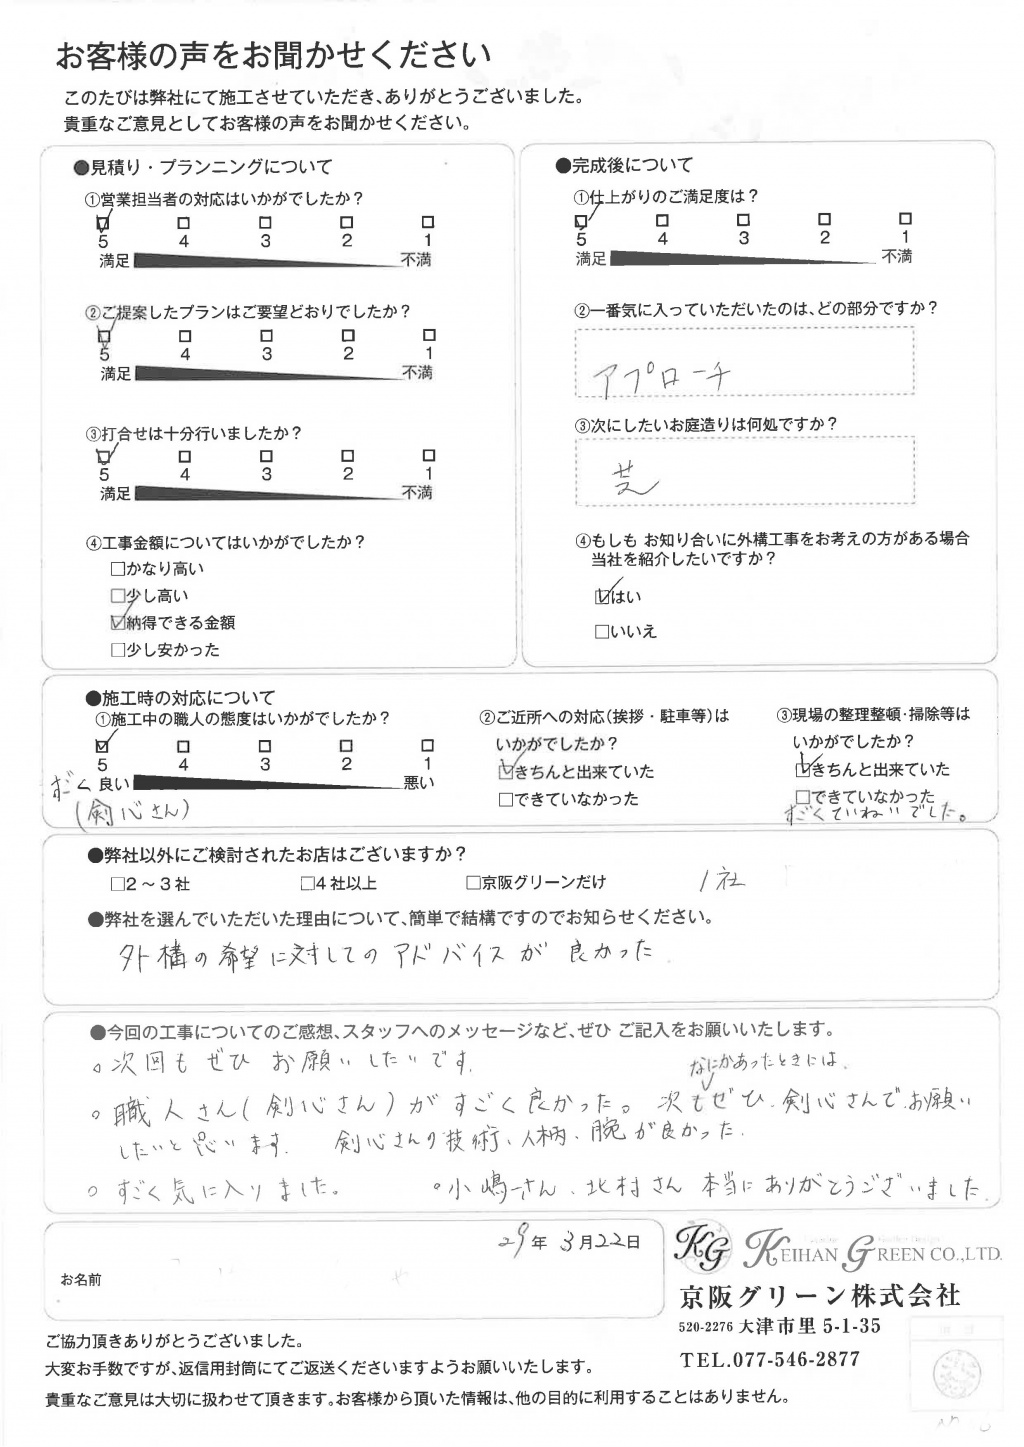 お客様の声をお聞かせください
このたびは弊社にて施工させていただき、ありがとうございました。
貴重なご意見としてお客様の声をお聞かせください。
●見積り・プランニングについて
①営業担当者の対応はいかがでしたか?
5 4 3 2 1
満足 不満
②ご提案したプランはご要望どおりでしたか?
5 4 3 2 1
満足 不満
③打合せは十分行いましたか?
5 4 3 2 1
満足 不満
④工事金額についてはいかがでしたか?
□かなり高い
□少し高い
☑納得できる金額
□少し安かった
●完成後について
①仕上がりのご満足度は?
5 4 3 2 1
満足 不満
②一番気に入っていただいたのは、どの部分ですか?
アプローチ
③次にしたいお庭造りは何処ですか?
芝
④もしも お知り合いに外構工事をお考えの方がある場合
当社を紹介したいですか?
☑はい
□いいえ
●施工時の対応について
①施工中の職人の態度はいかがでしたか?
5 4 3 2 1
すごく 良い 悪い
(剣心さん)
②ご近所への対応(挨拶・駐車等)は
いかがでしたか?
☑きちんと出来ていた
□できていなかった
③現場の整理整頓・掃除等は
いかがでしたか?
☑きちんと出来ていた
□できていなかった
すごくていねいでした。
●弊社以外にご検討されたお店はございますか?
□2～3社 □4社以上 □京阪グリーンだけ 1社
●弊社を選んでいただいた理由について、簡単で結構ですのでお知らせください。
外構の希望に対してのアドバイスが良かった
●今回の工事についてのご感想、スタッフへのメッセージなど、ぜひ ご記入をお願いいたします。
○次回もぜひお願いしたいです。
なにかあったときには、
○職人さん(剣心さん)がすごく良かった。次もぜひ、剣心さんでお願い
したいと思います。 剣心さんの技術、人柄、腕が良かった。
○すごく気に入りました。 ○小嶋さん、北村さん 本当にありがとうございました。
29年 3月22日
お名前
KG KEIHAN GREEN CO.,LTD.
京阪グリーン株式会社
520-2276 大津市里 5-1-35
TEL.077-546-2877
ご協力頂きありがとうございました。
大変お手数ですが、返信用封筒にてご返送くださいますようお願いいたします。
貴重なご意見は大切に扱わせて頂きます。お客様から頂いた情報は、他の目的に利用することはありません。